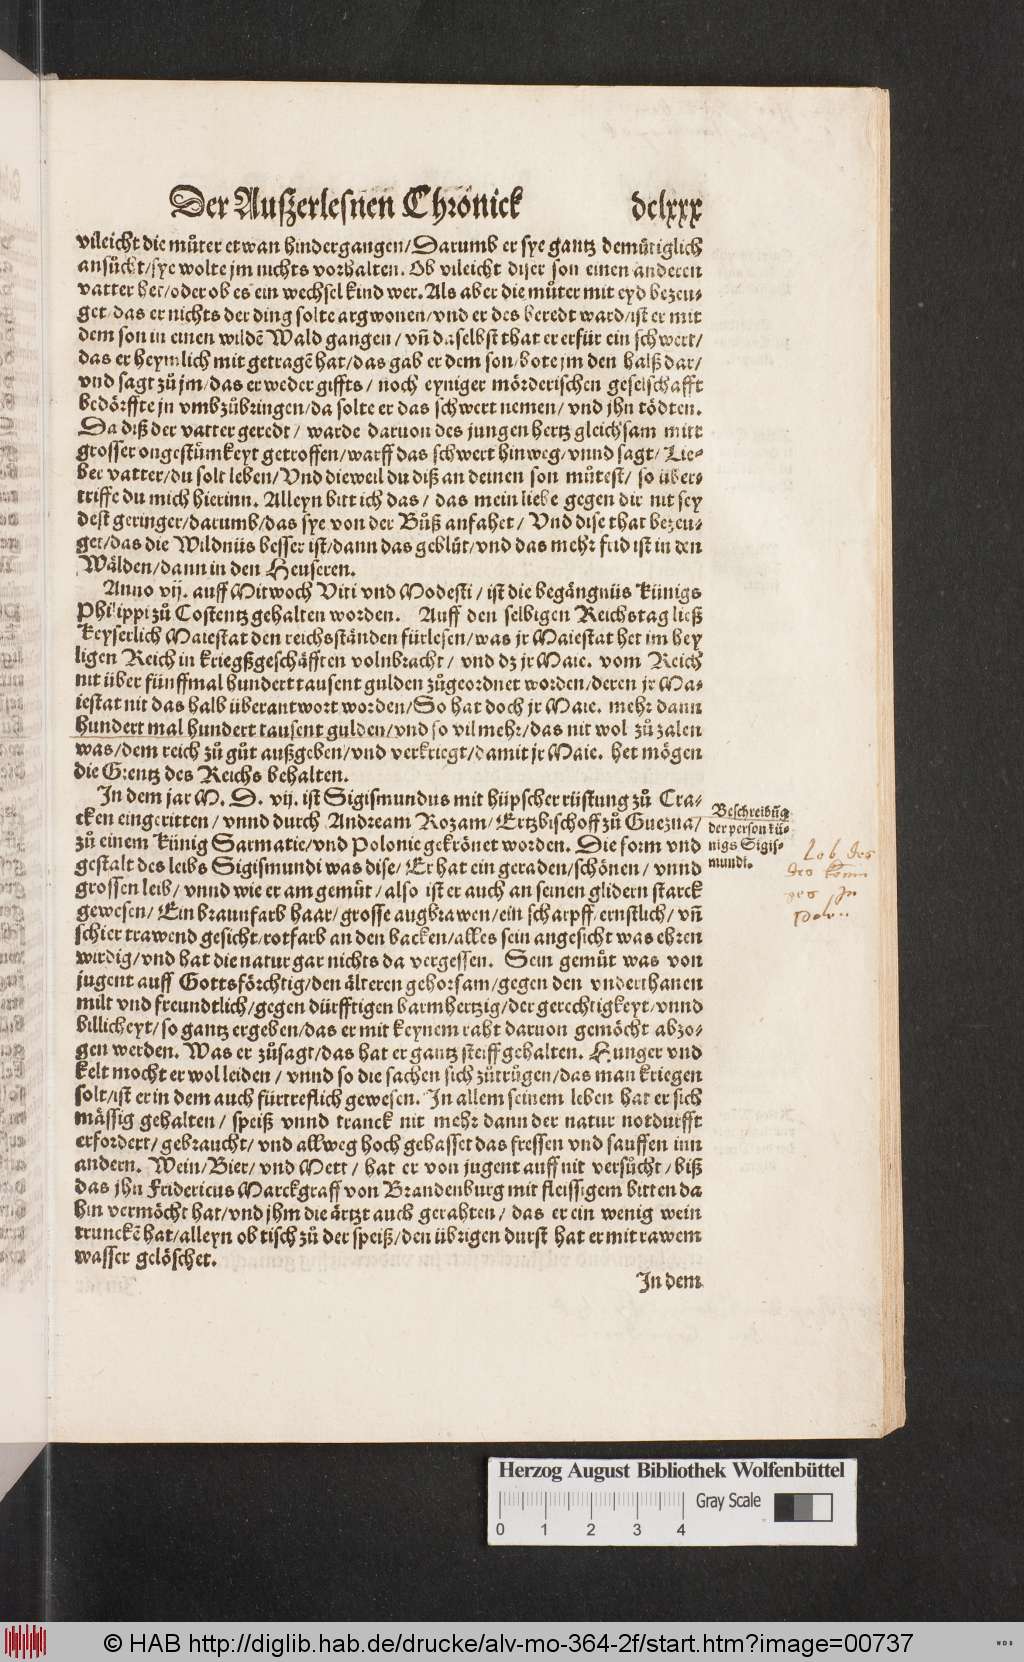 Der Außerlesnen Chrönick dclxxx
vileicht die můter etwan hindergangen/Darumb er sye gantz demůtiglich
ansůcht/sye wolte jm nichts vorhalten. Ob vileicht diser son einen anderen
vatter het/oder ob es ein wechsel kind wer. Als aber die můter mit eyd bezeu-
get/das er nichts der ding solte argwonen/vnd er des beredt ward/ist er mit
dem son in einen wildē Wald gangen/ vñ daselbst that er erfür ein schwert/
das er heymlich mit getragē hat/das gab er dem son/bote jm den halß dar/
vnd sagt zů jm/das er weder giffts/ noch eyniger mörderischen geselschafft
bedörffte jn vmbzůbringen/da solte er das schwert nemen/ vnd jhn tödten.
Da diß der vatter geredt/ warde daruon des jungen hertz gleichsam mitt
grosser ongestümkeyt getroffen/warff das schwert hinweg/vnnd sagt/ Lie-
ber vatter/du solt leben/ Vnd dieweil du diß an deinen son můtest/ so über-
triffe du mich hierinn. Alleyn bitt ich das/ das mein liebe gegen dir nit sey
dest geringer/darumb/das sye von der Bůß anfahet/ Vnd dise that bezeu-
get/das die Wildnüs besser ist/dann das geblůt/vnd das mehr frid ist in den
Wälden/dann in den Heuseren.
Anno vij. auff Mitwoch Viti vnd Modesti/ ist die begängnüs Künigs
Philippi zů Costentz gehalten worden. Auff den selbigen Reichstag ließ
Keyserlich Maiestat den reichsständen fürlesen/was jr Maiestat het im hey
ligen Reich in kriegßgeschäfften volnbracht/ vnd dz jr Maie. vom Reich
nit über fünffmal hundert tausent gulden zůgeordnet worden/deren jr Ma-
iestat nit das halb überantwort worden/So hat doch jr Maie. mehr dann
hundert mal hundert tausent gulden/vnd so vil mehr/das nit wol zů zalen
was/dem reich zů gůt außgeben/vnd verkriegt/damit jr Maie. het mögen
die Grentz des Reichs behalten.
In dem jar M. D. vij. ist Sigismundus mit hüpscher rüstung zů Cra-
cken eingeritten/ vnnd durch Andream Rozam/ Ertzbischoff zů Guezna/
zů einem Künig Sarmatie/vnd Polonie gekrönet worden. Die form vnd
gestalt des leibs Sigismundi was dise/ Er hat ein geraden/schönen/ vnnd
grossen leib/ vnnd wie er am gemüt/also ist er auch an seinen glidern starck
gewesen/ Ein braunfarb haar/grosse augbrawen/ein scharpff/ernstlich/ vñ
schier trawend gesicht/rotfarb an den backen/alles sein angesicht was ehren
wirdig/vnd hat die natur gar nichts da vergessen. Sein gemüt was von
jugent auff Gottsförchtig/den älteren gehorsam/gegen den vnderthanen
milt vnd freundtlich/gegen dürfftigen barmhertzig/der gerechtigkeyt/vnnd
billicheyt/so gantz ergeben/das er mit keynem raht daruon gemöcht abzo-
gen werden. Was er zůsagt/das hat er gantz steiff gehalten. Hunger vnd
kelt mocht er wol leiden/ vnnd so die sachen sich zůtrůgen/das man kriegen
solt/ist er in dem auch fürtreflich gewesen. In allem seinem leben hat er sich
mässig gehalten/ speiß vnnd tranck nit mehr dann der natur notdurfft
erfordert/gebraucht/vnd allweg hoch gehasset das fressen vnd sauffen inn
andern. Wein/Bier/vnd Mett/ hat er von jugent auff nit versůcht/biß
das jhn Fridericus Marckgraff von Brandenburg mit fleissigem bitten da
hin vermöcht hat/vnd jhm die ärtzt auch gerahten/ das er ein wenig wein
trunckē hat/alleyn ob tisch zů der speiß/den übrigen durst hat er mit rawem
wasser gelöschet.
In dem
Beschreibūg
der person kü-
nigs Sigis-
mundi.
Lob des
des
in
Herzog August Bibliothek Wolfenbüttel
Gray Scale
0 1 2 3 4
© HAB http://diglib.hab.de/drucke/alv-mo-364-2f/start.htm?image=00737